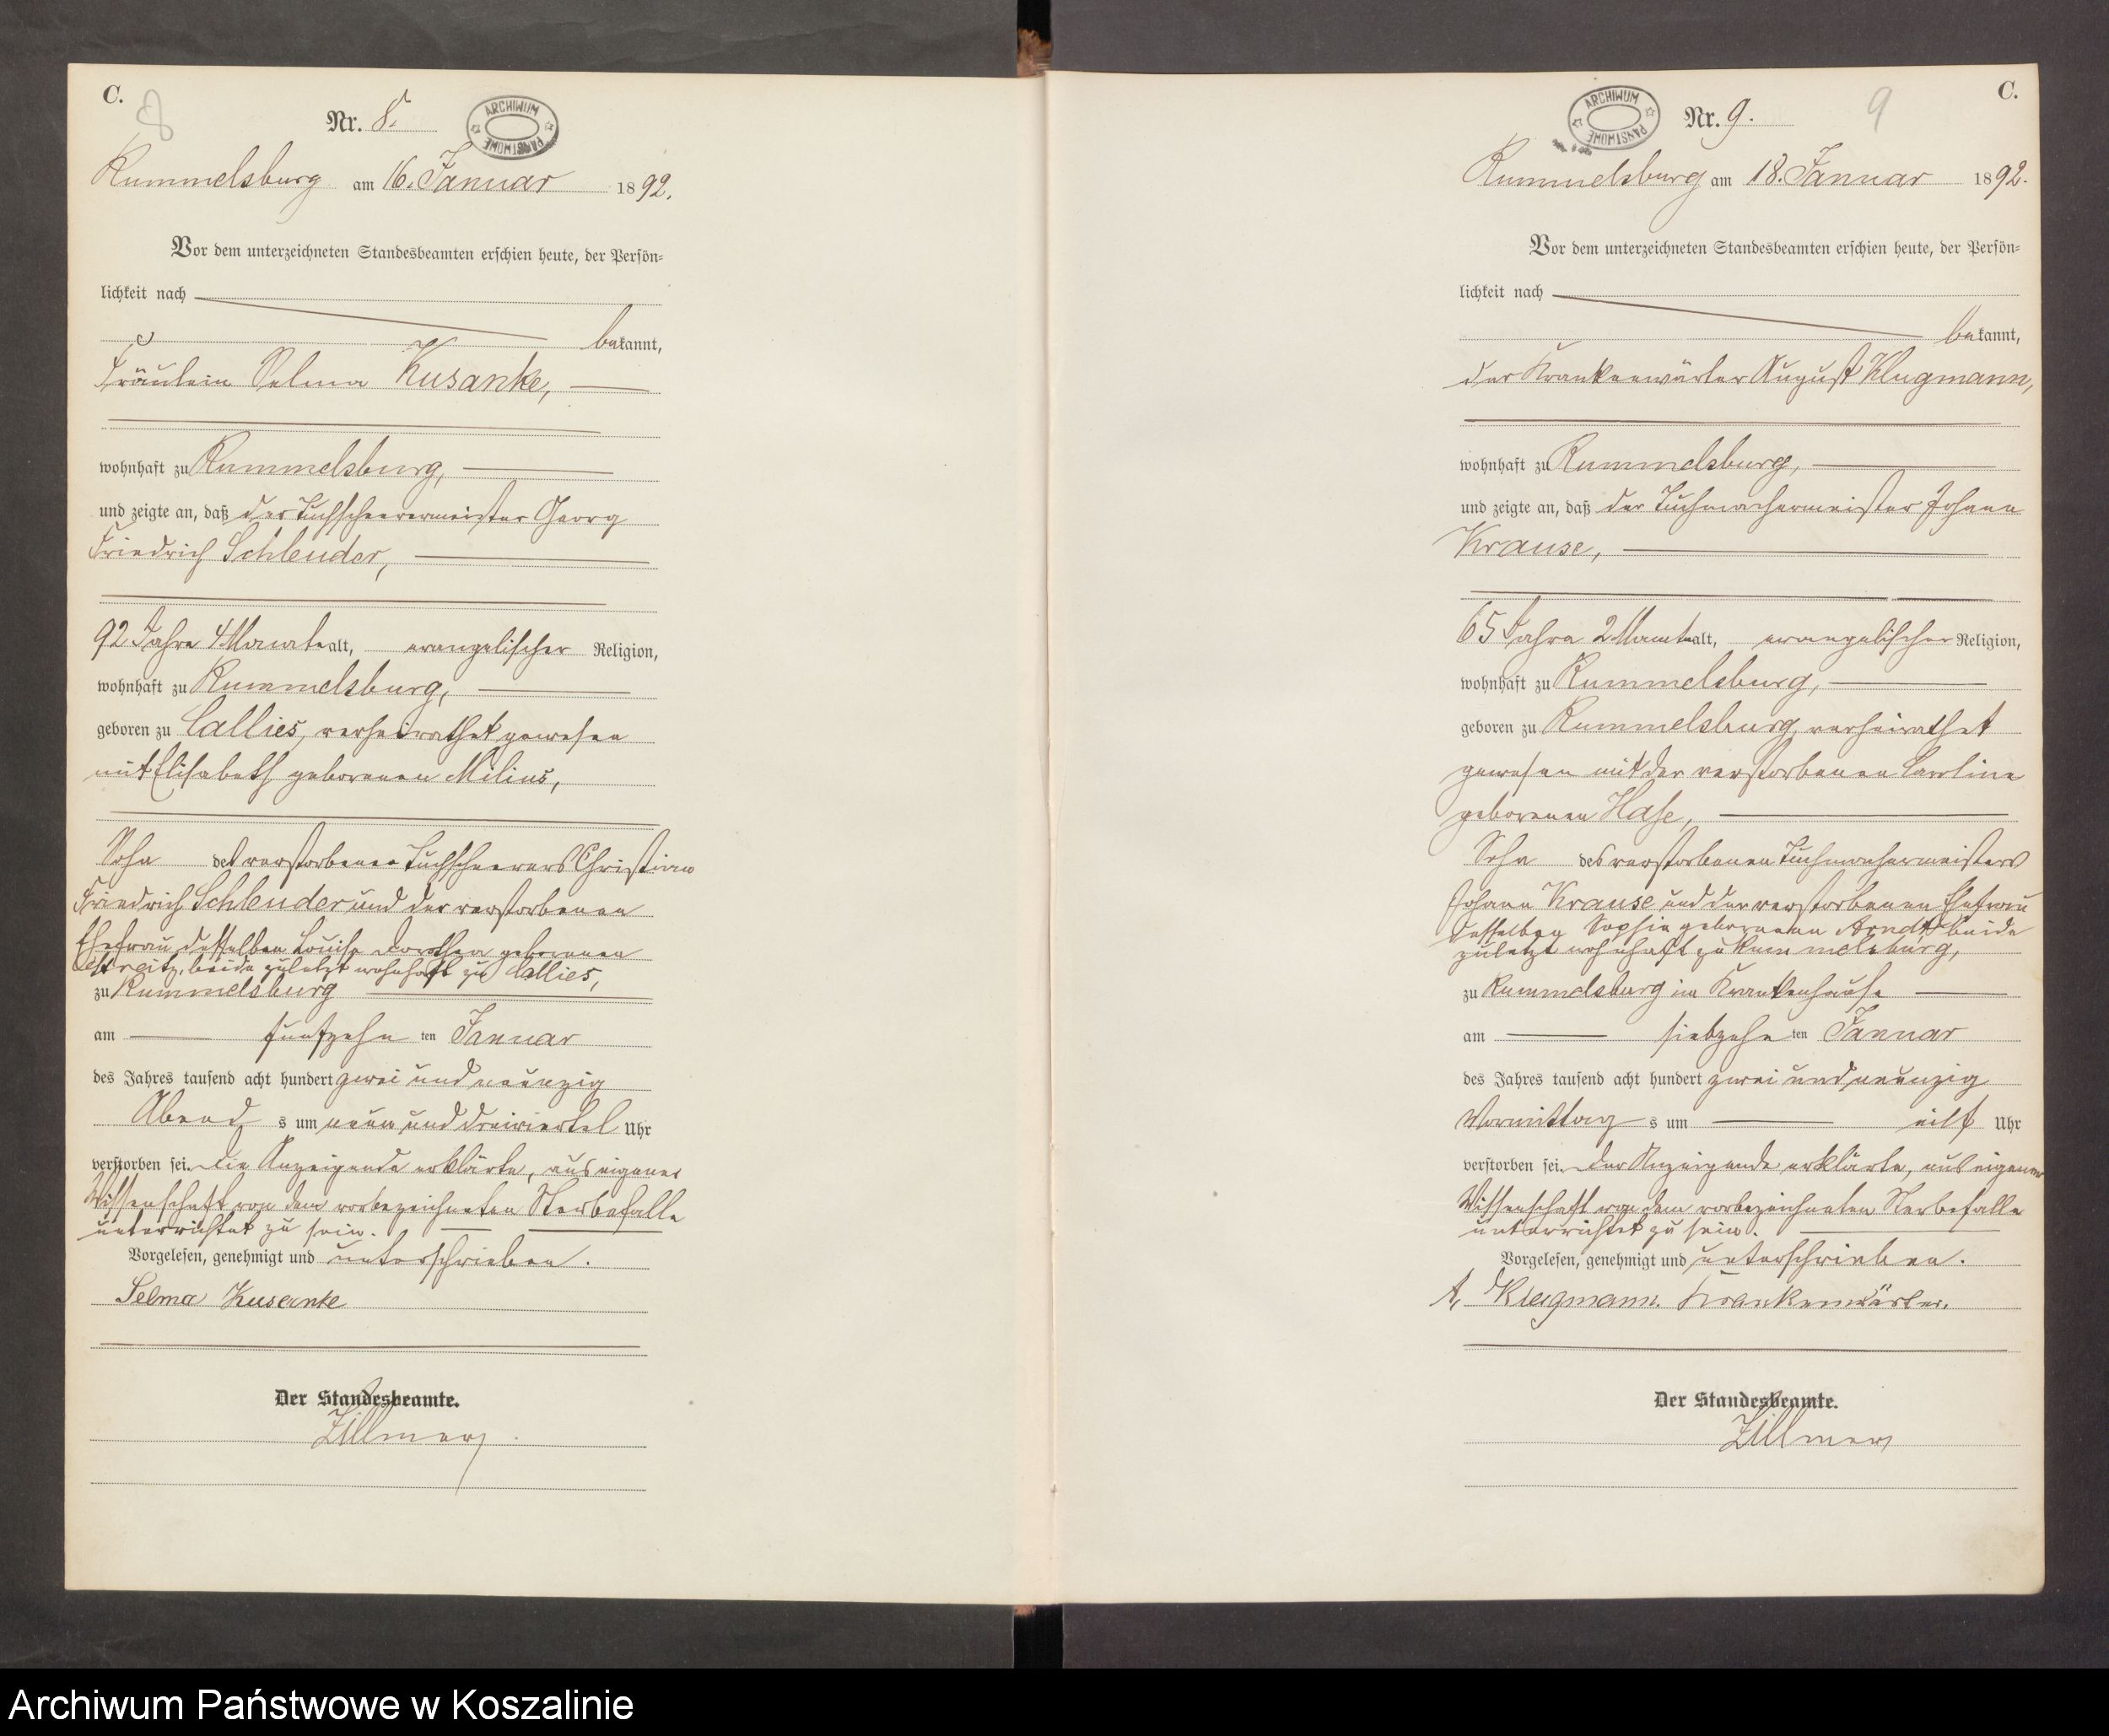 C.
8
Nr. 8.
ARCHIWUM PAŃSTWOWE
Rummelsburg am 16. Januar 1892.
Vor dem unterzeichneten Standesbeamten erschien heute, der Persön-
lichkeit nach
bekannt,
Fräulein Selma Kusanke,
wohnhaft zu Rummelsburg,
und zeigte an, daß der Tuchscheerermeister Georg
Friedrich Schleuder,
92 Jahre 4 Monate alt, evangelischer Religion,
wohnhaft zu Rummelsburg,
geboren zu Callies, verheirathet gewesen
mit Elisabeth geborenen Milius,
Sohn des verstorbenen Tuchscheerers Christian
Friedrich Schleuder und der verstorbenen
Ehefrau desselben Louise Dorothea geborenen
beide zuletzt wohnhaft zu Callies,
zu Rummelsburg
am fünfzehn ten Januar
des Jahres tausend acht hundert zwei und neunzig
Abend s um neun und dreiviertel Uhr
verstorben sei. Die Anzeigende erklärte, aus eigener
Wissenschaft von dem vorbezeichneten Sterbefalle
unterrichtet zu sein.
Vorgelesen, genehmigt und unterschrieben.
Selma Kusanke
Der Standesbeamte.
Zillmer
C.
9
Nr. 9.
ARCHIWUM PAŃSTWOWE
Rummelsburg am 18. Januar 1892.
Vor dem unterzeichneten Standesbeamten erschien heute, der Persön-
lichkeit nach
bekannt,
der Krankenwärter August Klugmann,
wohnhaft zu Rummelsburg,
und zeigte an, daß der Tuchmachermeister Johann
Krause,
65 Jahre 2 Monate alt, evangelischer Religion,
wohnhaft zu Rummelsburg,
geboren zu Rummelsburg, verheirathet
gewesen mit der verstorbenen Caroline
geborenen Hase,
Sohn des verstorbenen Tuchmachermeisters
Johann Krause und der verstorbenen Ehefrau
desselben Sophie geborenen Arndt beide
zuletzt wohnhaft zu Rummelsburg,
zu Rummelsburg im Krankenhause
am siebzehn ten Januar
des Jahres tausend acht hundert zwei und neunzig
Vormittag s um eilf Uhr
verstorben sei. Der Anzeigende erklärte, aus eigener
Wissenschaft von dem vorbezeichneten Sterbefalle
unterrichtet zu sein.
Vorgelesen, genehmigt und unterschrieben.
A. Klugmann. Krankenwärter.
Der Standesbeamte.
Zillmer
Archiwum Państwowe w Koszalinie